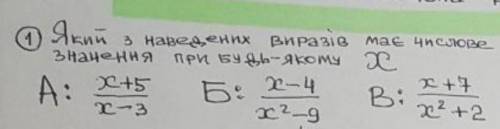 ① Який з наведених виразів має числове
значення при будь-якому x
А: (x+5)/(x-3) Б: (x-4)/(x²-9) В: (x+7)/(x²+2)